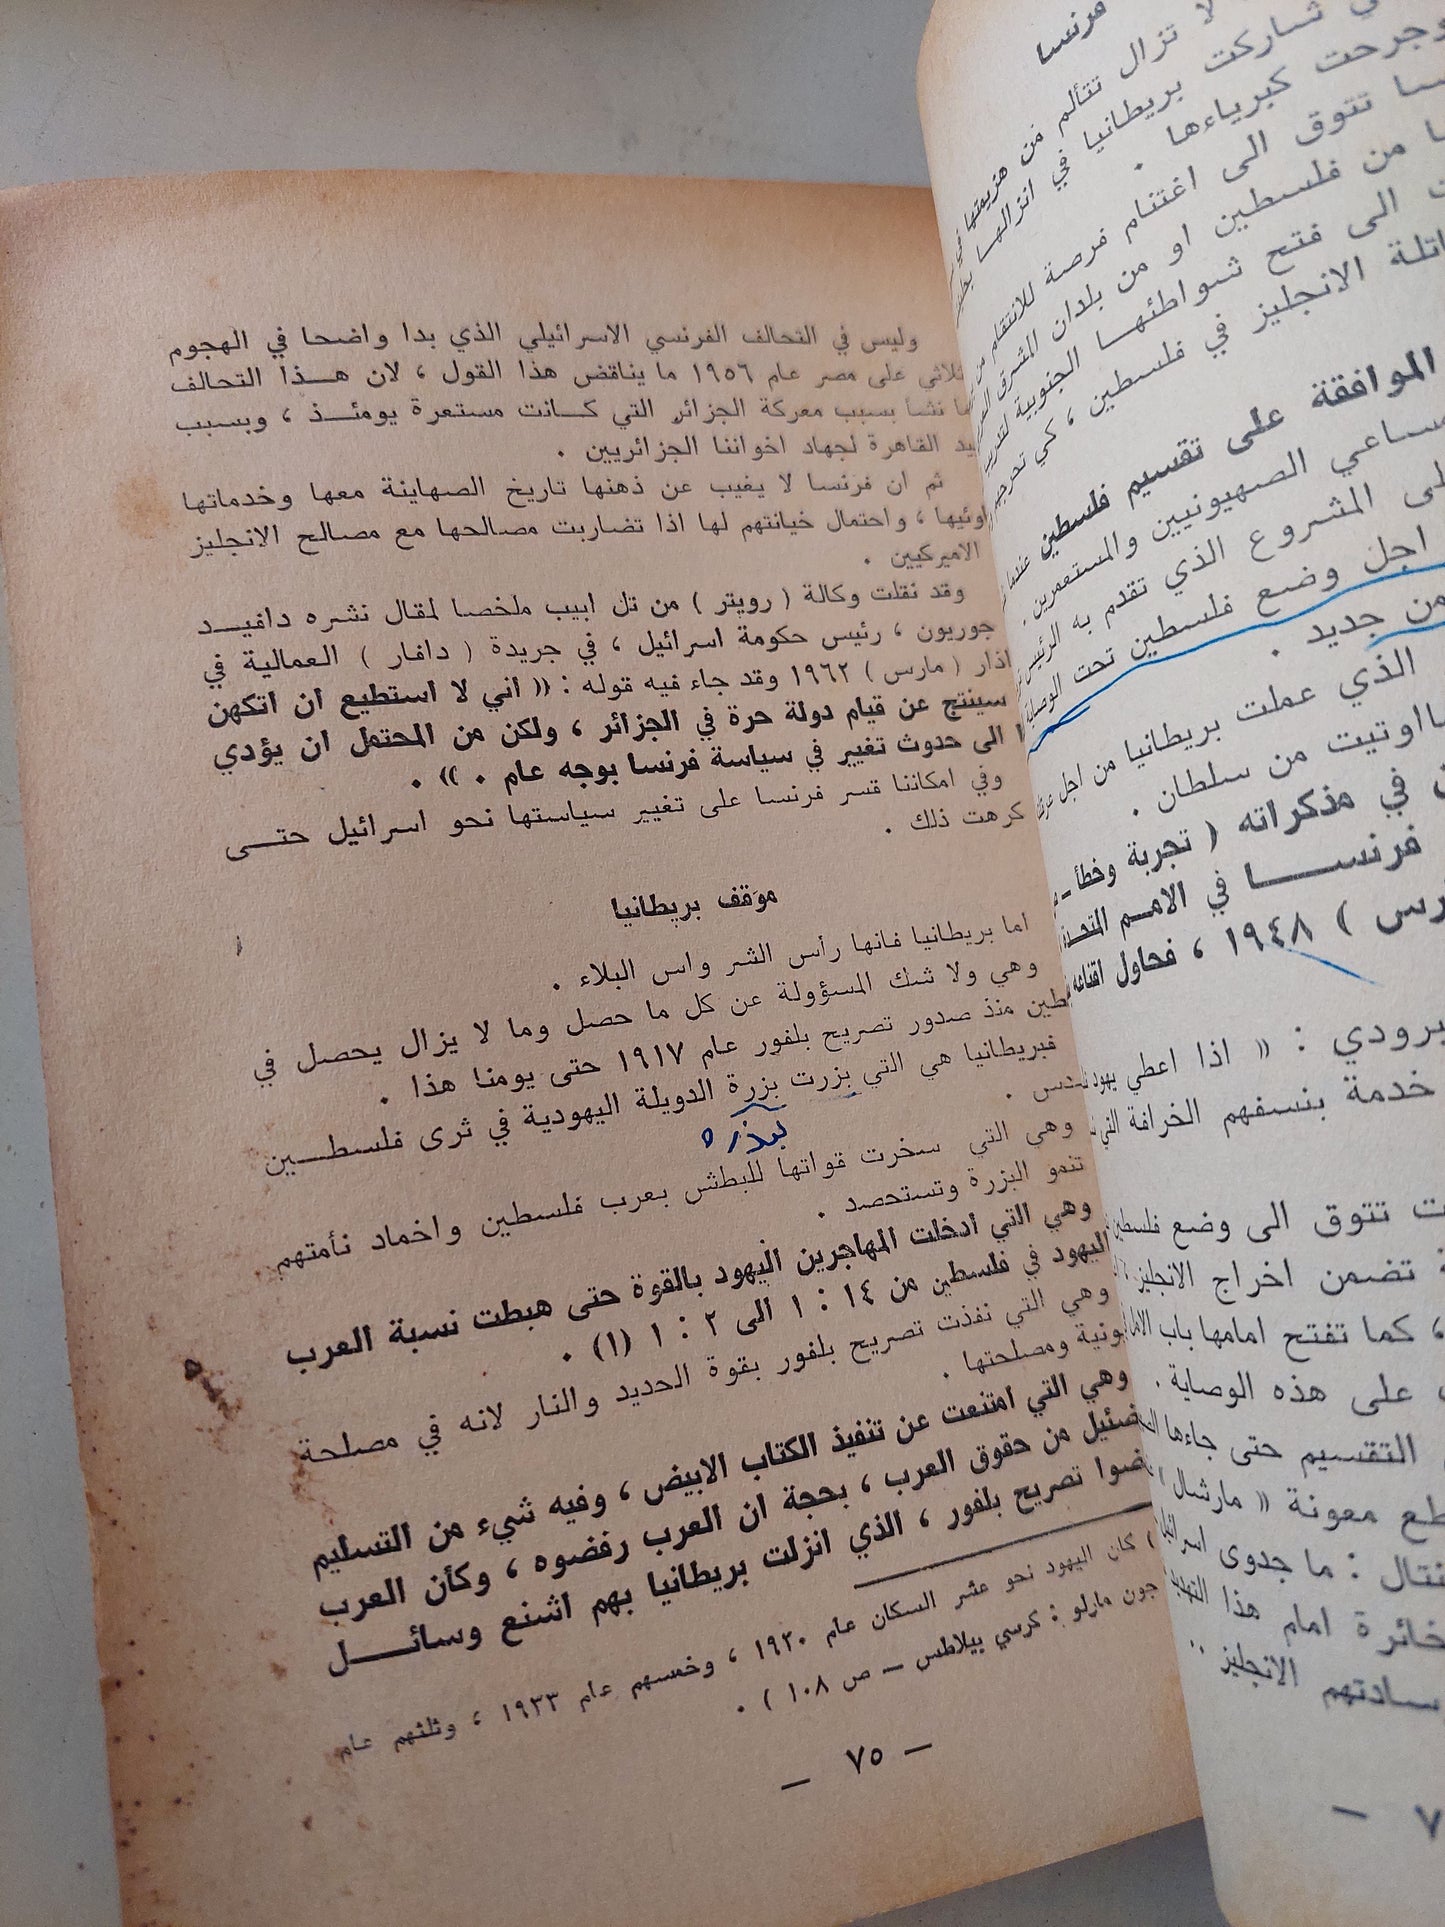 وليس في التحالف الفرنسي الاسرائيلي الذي بدا واضحا في الهجوم
لاثي على مصر عام ١٩٥٦ ما يناقض هذا القول ، لان هـــذا التحالف
ا نشأ بسبب معركة الجزائر التي كـــانت مستعرة يومئــذ ، وبسبب
يد القاهرة لجهاد اخواننا الجزائريين .
ثم ان فرنسا لا يغيب عن ذهنها تاريخ الصهاينة معها وخدماتها
اوئيها ، واحتمال خيانتهم لها اذا تضاربت مصالحها مع مصالح الانجليز
الاميركيين .
وقد نقلت وكالة ( رويتر ) من تل ابيب ملخصا لمقال نشره دافيـــد
جوريون ، رئيس حكومة اسرائيل ، في جريدة ( دافار ) العمالية في
اذار ( مارس ) ١٩٦٢ وقد جاء فيه قوله : « اني لا استطيع ان اتكهن
سينتج عن قيام دولة حرة في الجزائر ، ولكن من المحتمل ان يؤدي
ا الى حدوث تغيير في سياسة فرنسا بوجه عام . » .
وفي امكاننا قسر فرنسا على تغيير سياستها نحو اسرائيل حتـــى
كرهت ذلك .
موقف بريطانيا
اما بريطانيا فانها رأس الشر واس البلاء .
وهي ولا شك المسؤولة عن كل ما حصل وما لا يزال يحصل في
طين منذ صدور تصريح بلفور عام ١٩١٧ حتى يومنا هذا .
فبريطانيا هي التي بزرت بزرة الدويلة اليهودية في ثرى فلسطـــين
دس .
بذره
وهي التي سخرت قواتها للبطش بعرب فلسطين واخماد نأمتهم
تنمو البزرة وتستحصد .
وهي التي ادخلت المهاجرين اليهود بالقوة حتى هبطت نسبة العرب
اليهود في فلسطين من ١٤ : ١ الى ٢ : ١ (١) .
وهي التي نفذت تصريح بلفور بقوة الحديد والنار لانه في مصلحة
يونية ومصلحتها .
وهي التي امتنعت عن تنفيذ الكتاب الابيض ، وفيه شيء من التسليم
ضئيل من حقوق العرب ، بحجة ان العرب رفضوه ، وكأن العرب
ضوا تصريح بلفور ، الذي انزلت بريطانيا بهم اشنع وسائـــل
) كان اليهود نحو عشر السكان عام ١٩٢٠ ، وخمسهم عام ١٩٣٣ ، وثلثهم عام
جون مارلو : كرسي بيلاطس — ص ١٠٨ ) .
— ٧٥ —
فرنسا
لا تزال تتألم من هزيمتها في
شاركت بريطانيا في انزالها
وجرحت كبرياءها .
تتوق الى اغتنام فرصة للانتقام من
من فلسطين او من بلدان المشرق
الى فتح شواطئها الجنوبية
الانجليز في فلسطين ، كي تحرجهم
الموافقة على تقسيم فلسطين
الصهيونيين والمستعمرين .
المشروع الذي تقدم به الرئيس
اجل وضع فلسطين تحت الوصاية
من جديد .
الذي عملت بريطانيا من اجل
اوتيت من سلطان .
في مذكراته ( تجربة وخطأ —
فرنســـا في الامم المتحدة
رس ) ١٩٤٨ ، فحاول اقناعه
برودي : « اذا اعطي يهود
خدمة بنسفهم الخرافة التي
تتوق الى وضع فلسطين
تضمن اخراج الانجليز
، كما تفتح امامها باب
على هذه الوصاية .
التقسيم حتى جاءها
معونة « مارشال »
: ما جدوى
امام هذا التهديد
سادتهم الانجليز ..
٧ —